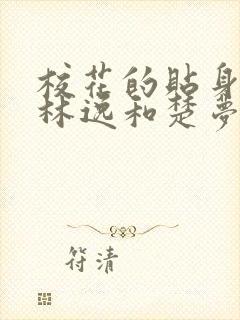 校花的贴身
林逸和楚夢
符清